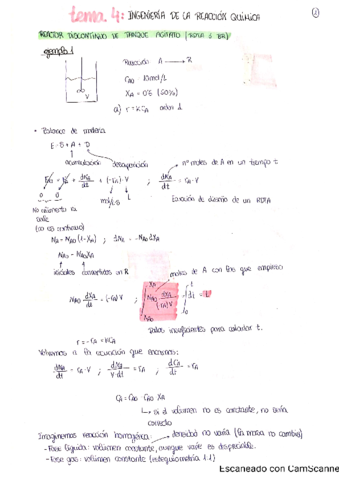 tema 4: INGENIERÍA DE LA REACCIÓN QUÍMICA
REACTOR DISCONTINUO DE TANQUE AGITADO (RDTA ó BR)
ejemplo 1
Reacción A → R
CA0 = 10mol/L
XA = 0'5 (50%)
a) r = kCA orden 1
V
• Balance de materia
E - S + A + D
acumulación desaparición nº moles de A en un tiempo t
; dNA/dt = rA·V
0 0 mol/L·s L Ecuación de diseño de un RDTA
No alimento ni sale
(no es continuo)
NA = NA0 (1-XA) ; dNA = -NA0 dXA
NA0 - NA0XA
iniciales convertidos en R moles de A con los que empiezo
NA0 dXA/dt = (-rA)·V
Datos insuficientes para calcular t.
r = -rA = kCA
Volvemos a la ecuación que tenemos:
dNA/dt = rA·V ; dNA/V·dt = rA ; dCA/dt = rA
CA = CA0 - CA0 XA
si el volumen no es constante, no sería correcto
Imaginemos reacción homogénea: densidad no varía (la masa no cambia)
- Fase líquida: volumen constante, aunque varíe es despreciable.
- Fase gas: volumen constante (estequiometría 1:1)
Escaneado con CamScanner